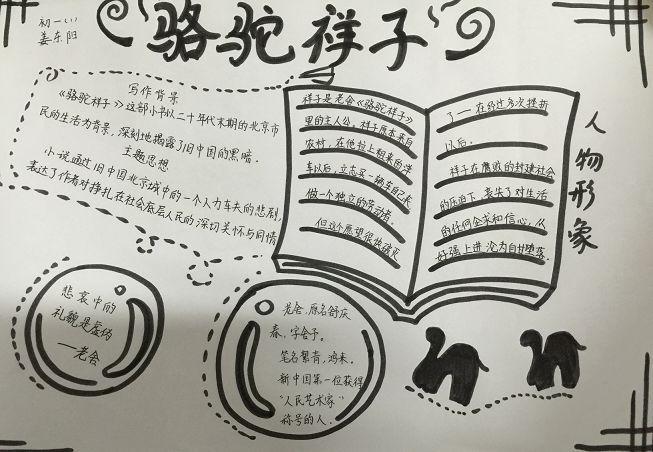 骆驼祥子
初一(1)
姜东阳
写作背景
《骆驼祥子》这部小书以二十年代末期的北京市
民的生活为背景,深刻地揭露了旧中国的黑暗.
主题思想
小说通过旧中国北京城中的一个人力车夫的悲剧,
表达了作者对挣扎在社会底层人民的深切关怀与同情
祥子是老舍《骆驼祥子》
里的主人公,祥子原本来自
农村,在他拉上租来的洋
车以后,立志买一辆车自己拉
做一个独立的劳动者.
但这个愿望很快破灭
了——在经过多次挫折
以后.
祥子在腐败的封建社会
的压迫下,丧失了对生活
的任何企求和信心,从
好强上进沦为自甘堕落.
人物形象
悲哀中的
礼貌是虚伪
—老舍
老舍,原名舒庆
春,字舍予。
笔名絜青,鸿来.
新中国第一位获得
"人民艺术家"
称号的人.